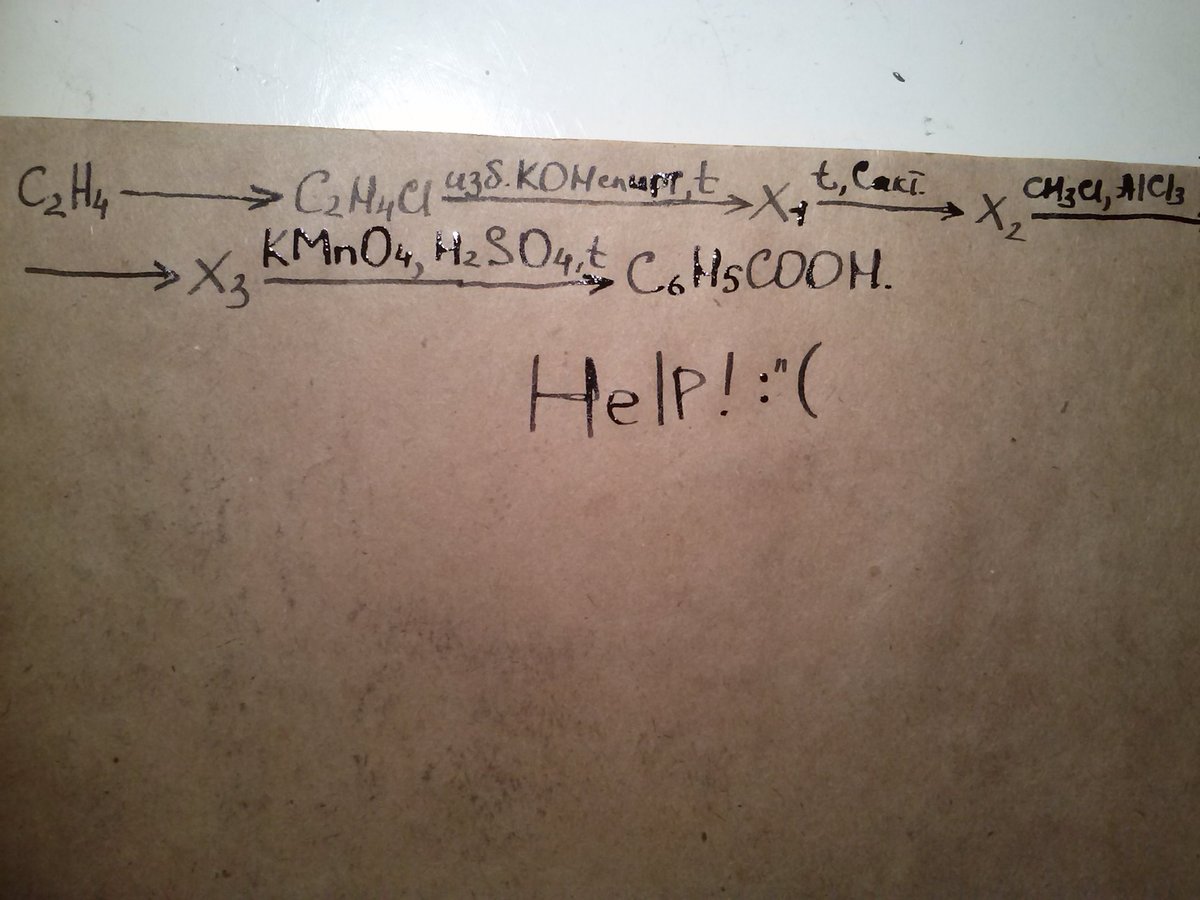 C₂H₄ → C₂H₄Cl изб. KOHспирт, t → X₁ t, Cакт. → X₂ CH₃Cl, AlCl₃
→ X₃ KMnO₄, H₂SO₄, t → C₆H₅COOH.
Help! :"(